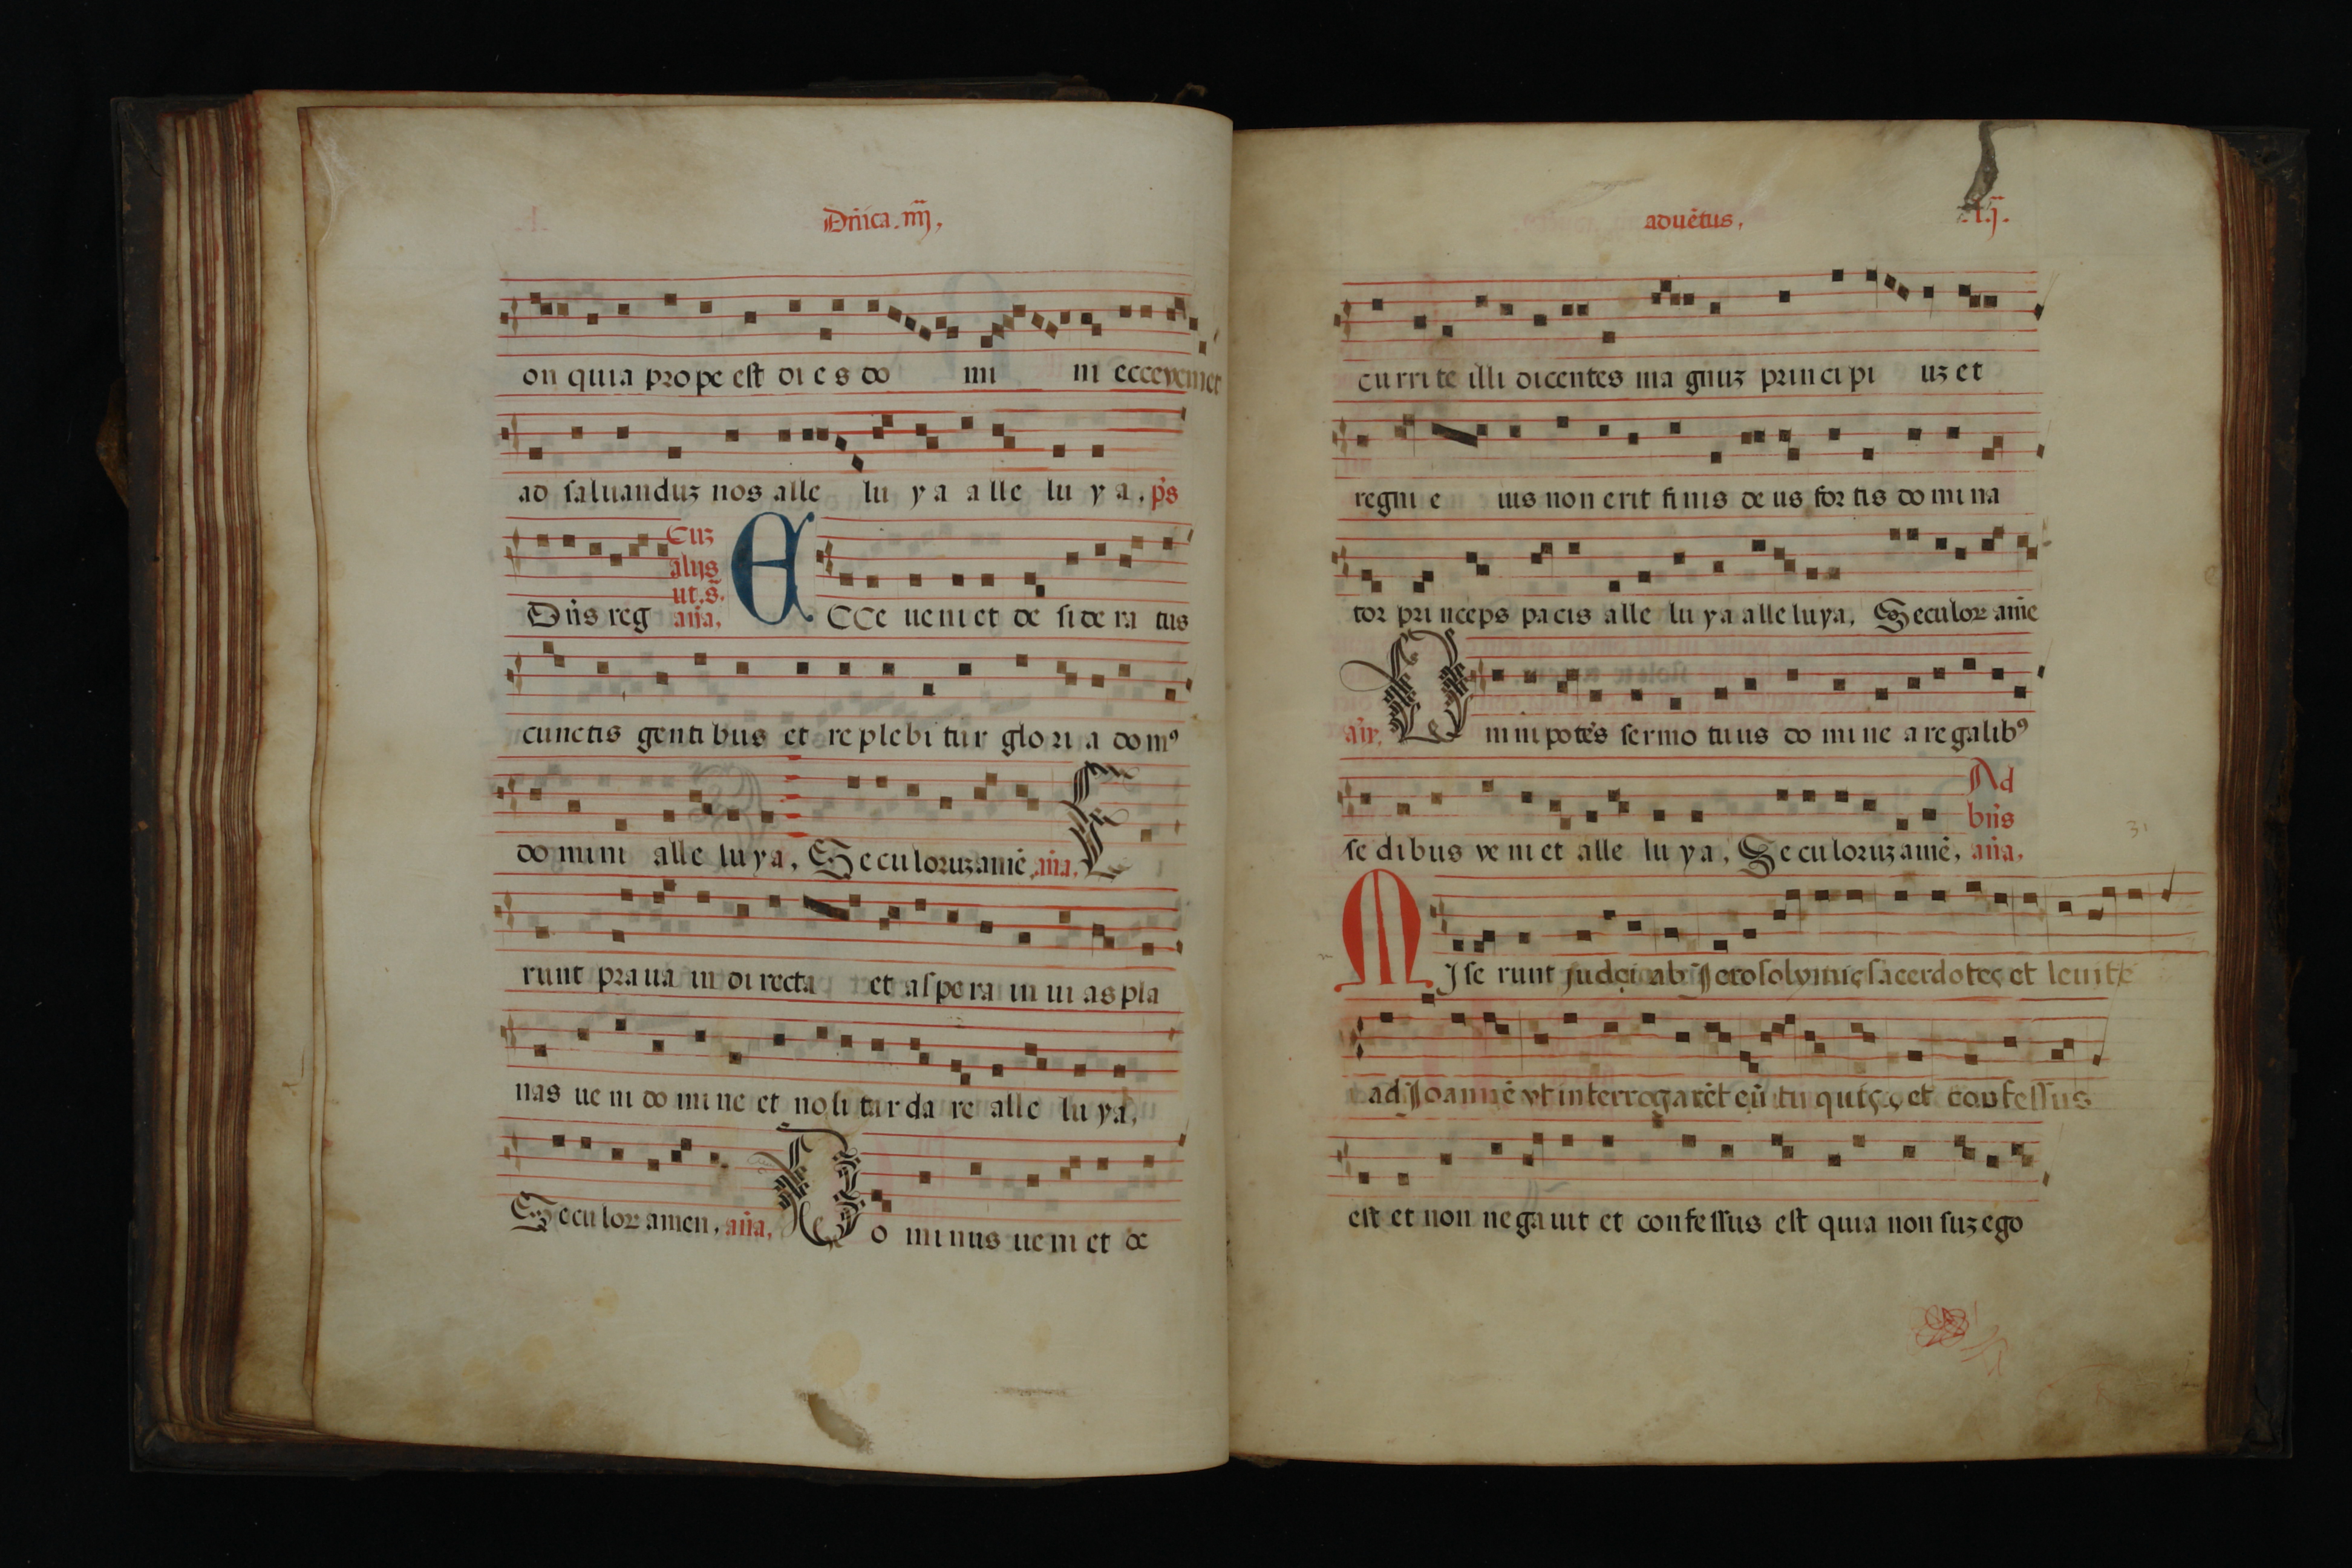 Dñica. iiij,
on quia prope est dies do mi ni ecce veniet
ad saluanduz nos alle lu ya alle lu ya, ps
Euz
alijs
ut. s.
Dñs reg aña, ECCe ueniet desideratus
cunctis gentibus et replebitur gloria domꝰ
domini alle luya, Seculoruz amē aña, E
runt praua in directa et aspera in uias pla
nas ueni domine et noli tardare alle lu ya,
Seculoꝝ amen, aña, Dominus ueniet oc
aduētus,
currite illi dicentes magnuz principi uz et
regni e ius non erit finis deus fortis domina
tor princeps pacis alle lu ya alleluya, Seculoꝝ amē
O mnipotēs sermo tuus domine a regalibꝰ
Ad
sedibus veniet alle lu ya, Seculoruz amē, bñs aña,
MJserunt judei ab Jerosolymis sacerdotes et leuite
ad Joannē vt interrogarēt eū tu quis es et confessus
est et non negauit et confessus est quia non suz ego